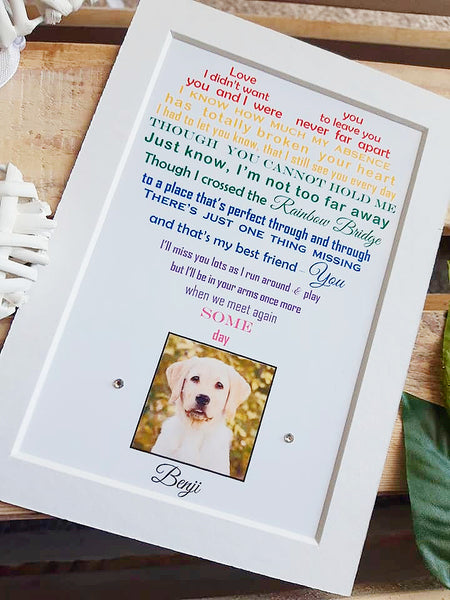 Love you
I didn't want to leave you
you and I were never far apart
I KNOW HOW MUCH MY ABSENCE
has totally broken your heart
I had to let you know, that I still see you every day
THOUGH YOU CANNOT HOLD ME
Just know, I'm not too far away
Though I crossed the Rainbow Bridge
to a place that's perfect through and through
THERE'S JUST ONE THING MISSING
and that's my best friend ... You
I'll miss you lots as I run around & play
but I'll be in your arms once more
when we meet again
SOME
day
Benji